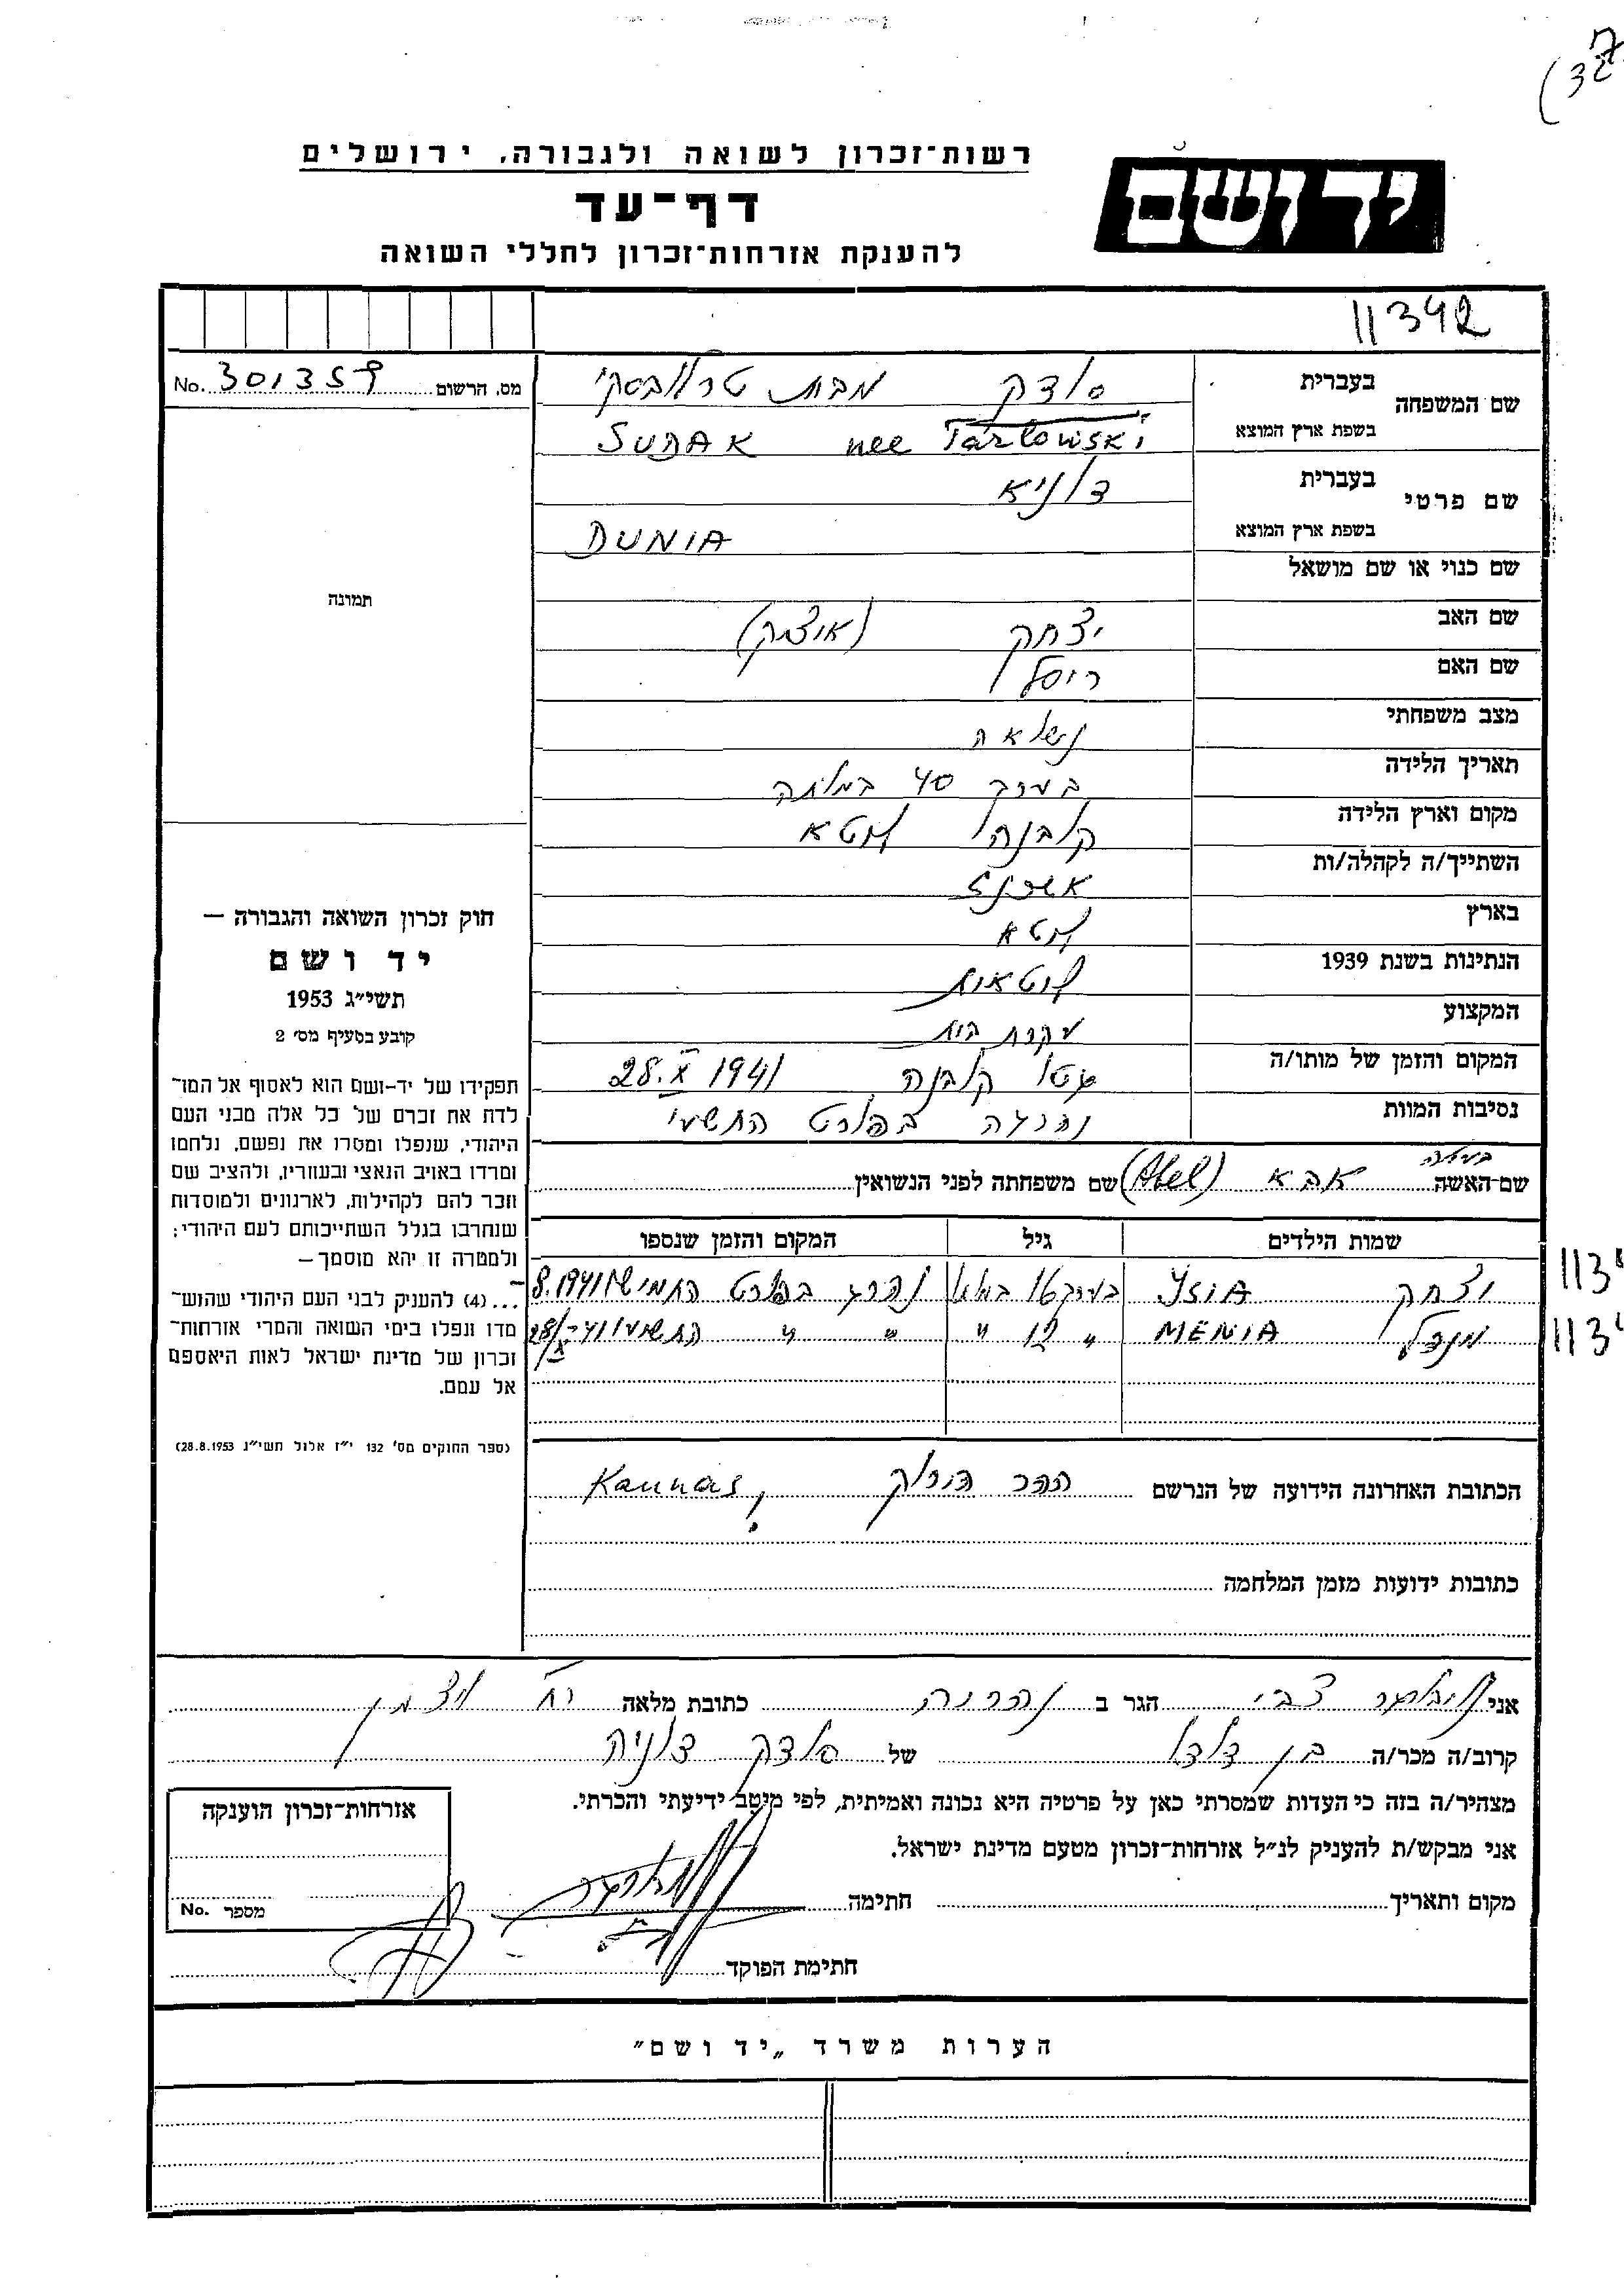 רשות־זכרון לשואה ולגבורה, ירושלים
יד ושם
דף־עד
להענקת אזרחות־זכרון לחללי השואה
11342
מס. הרשום No. 301359
תמונה
שם המשפחה בעברית סודק מבית טרלובסקי
בשפת ארץ המוצא SUDAK nee Tarlowski
שם פרטי בעברית דוניא
בשפת ארץ המוצא DUNIA
שם כנוי או שם מושאל
שם האב יצחק (איצק)
שם האם
מצב משפחתי נשואה
תאריך הלידה בערך 40 במותה
מקום וארץ הלידה קובנה ליטא
השתייך/ה לקהלה/ות אשכנז
בארץ ליטא
הנתינות בשנת 1939 ליטאית
המקצוע עקרת בית
המקום והזמן של מותו/ה גטו קובנה 28.X 1941
נסיבות המוות נהרגה בפורט התשעי
שם־האשה אבא (Abel) שם משפחתה לפני הנשואין
שמות הילדים גיל המקום והזמן שנספו
יצחק YSIA נהרג בפורט החמישי 8.1941
MENIA 12 " " " התשיעי
הכתובת האחרונה הידועה של הנרשם ההר הירוק Kaunas,
כתובות ידועות מזמן המלחמה
חוק זכרון השואה והגבורה —
יד ושם
תשי״ג 1953
קובע בסעיף מס׳ 2
תפקידו של יד-ושם הוא לאסוף אל המו־
לדת את זכרם של כל אלה מבני העם
היהודי, שנפלו ומסרו את נפשם, נלחמו
ומרדו באויב הנאצי ובעוזריו, ולהציב שם
וזכר להם לקהילות, לארגונים ולמוסדות
שנחרבו בגלל השתייכותם לעם היהודי;
ולמטרה זו יהא מוסמך —
...(4) להעניק לבני העם היהודי שהוש־
מדו ונפלו בימי השואה והמרי אזרחות־
זכרון של מדינת ישראל לאות היאספם
אל עמם.
(ספר החוקים מס׳ 132 י״ז אלול תשי״ג 28.8.1953)
אני צבי הגר ב נהריה כתובת מלאה רח׳ ויצמן
קרוב/ה מכר/ה בן דודו של סודק דוניה
מצהיר/ה בזה כי העדות שמסרתי כאן על פרטיה היא נכונה ואמיתית, לפי מיטב ידיעתי והכרתי.
אני מבקש/ת להעניק לנ״ל אזרחות־זכרון מטעם מדינת ישראל.
מקום ותאריך חתימה
חתימת הפוקד
אזרחות־זכרון הוענקה
מספר No.
הערות משרד „יד ושם״